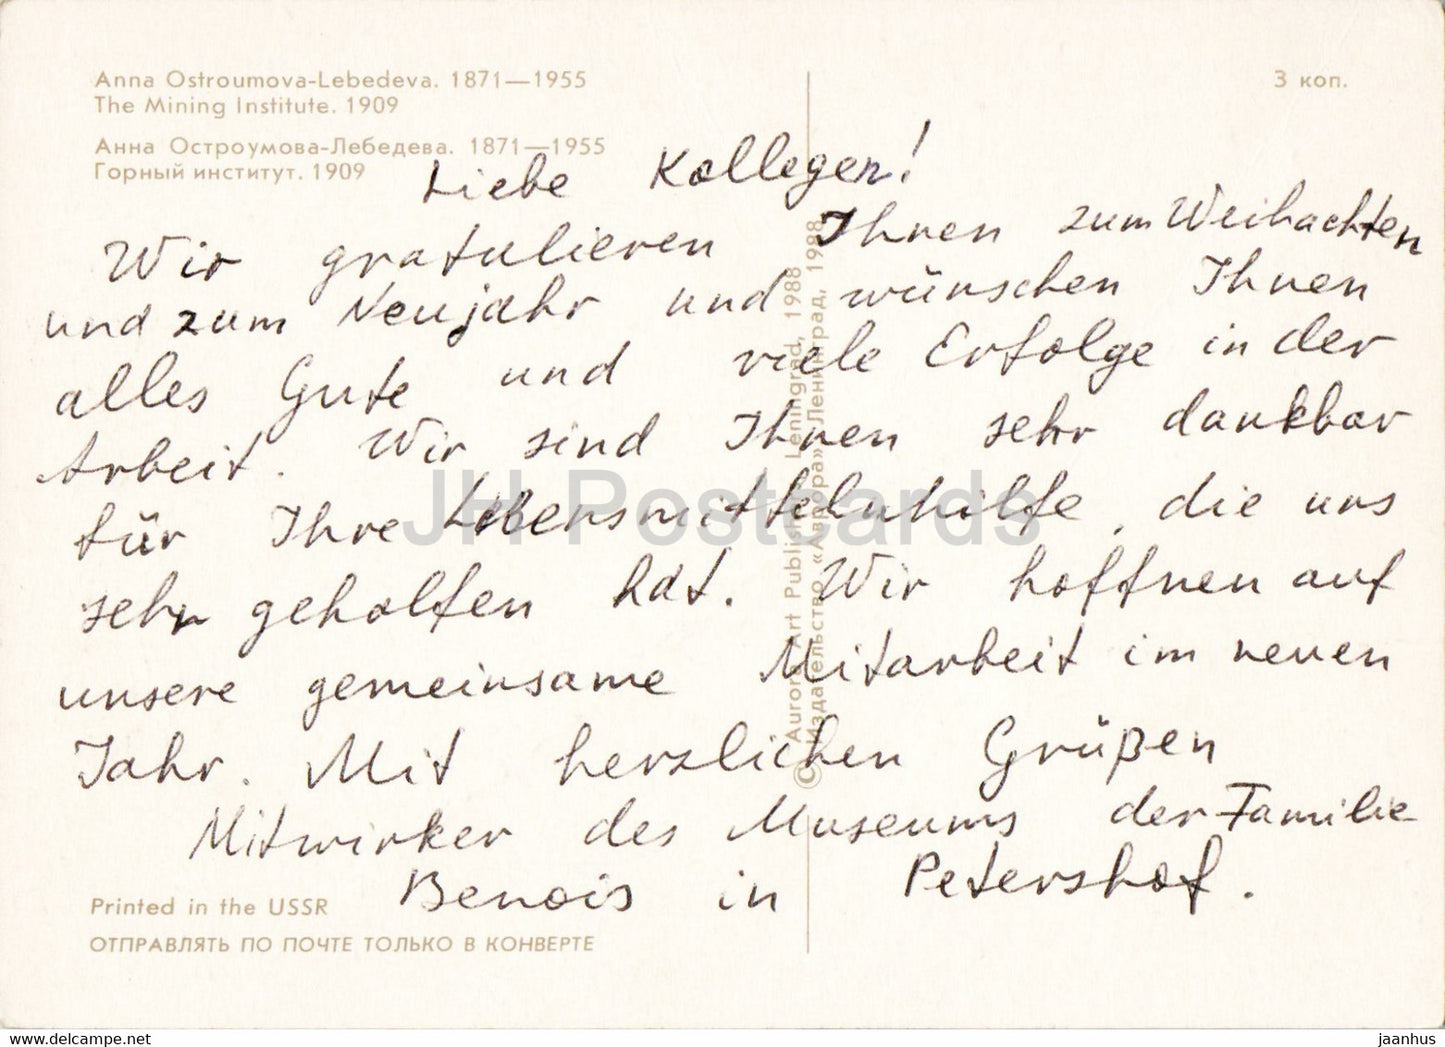 Anna Ostroumova-Lebedeva. 1871—1955
The Mining Institute. 1909
Анна Остроумова-Лебедева. 1871—1955
Горный институт. 1909
3 коп.
Liebe Kollegen!
Wir gratulieren Ihnen zum Weihachten
und zum Neujahr und wünschen Ihnen
alles Gute und viele Erfolge in der
Arbeit. Wir sind Ihnen sehr dankbar
für Ihre Lebensmittelnhilfe, die uns
sehr geholfen hat. Wir hoffnen auf
unsere gemeinsame Mitarbeit im neuen
Jahr. Mit herzlichen Grüßen
Mitwirker des Museums der Familie
Benois in Petershof.
© Aurora Art Publishers, Leningrad, 1988
Издательство «Аврора», Ленинград, 1988
Printed in the USSR
ОТПРАВЛЯТЬ ПО ПОЧТЕ ТОЛЬКО В КОНВЕРТЕ
JH Postcards
https://www.delcampe.net
jaanhus